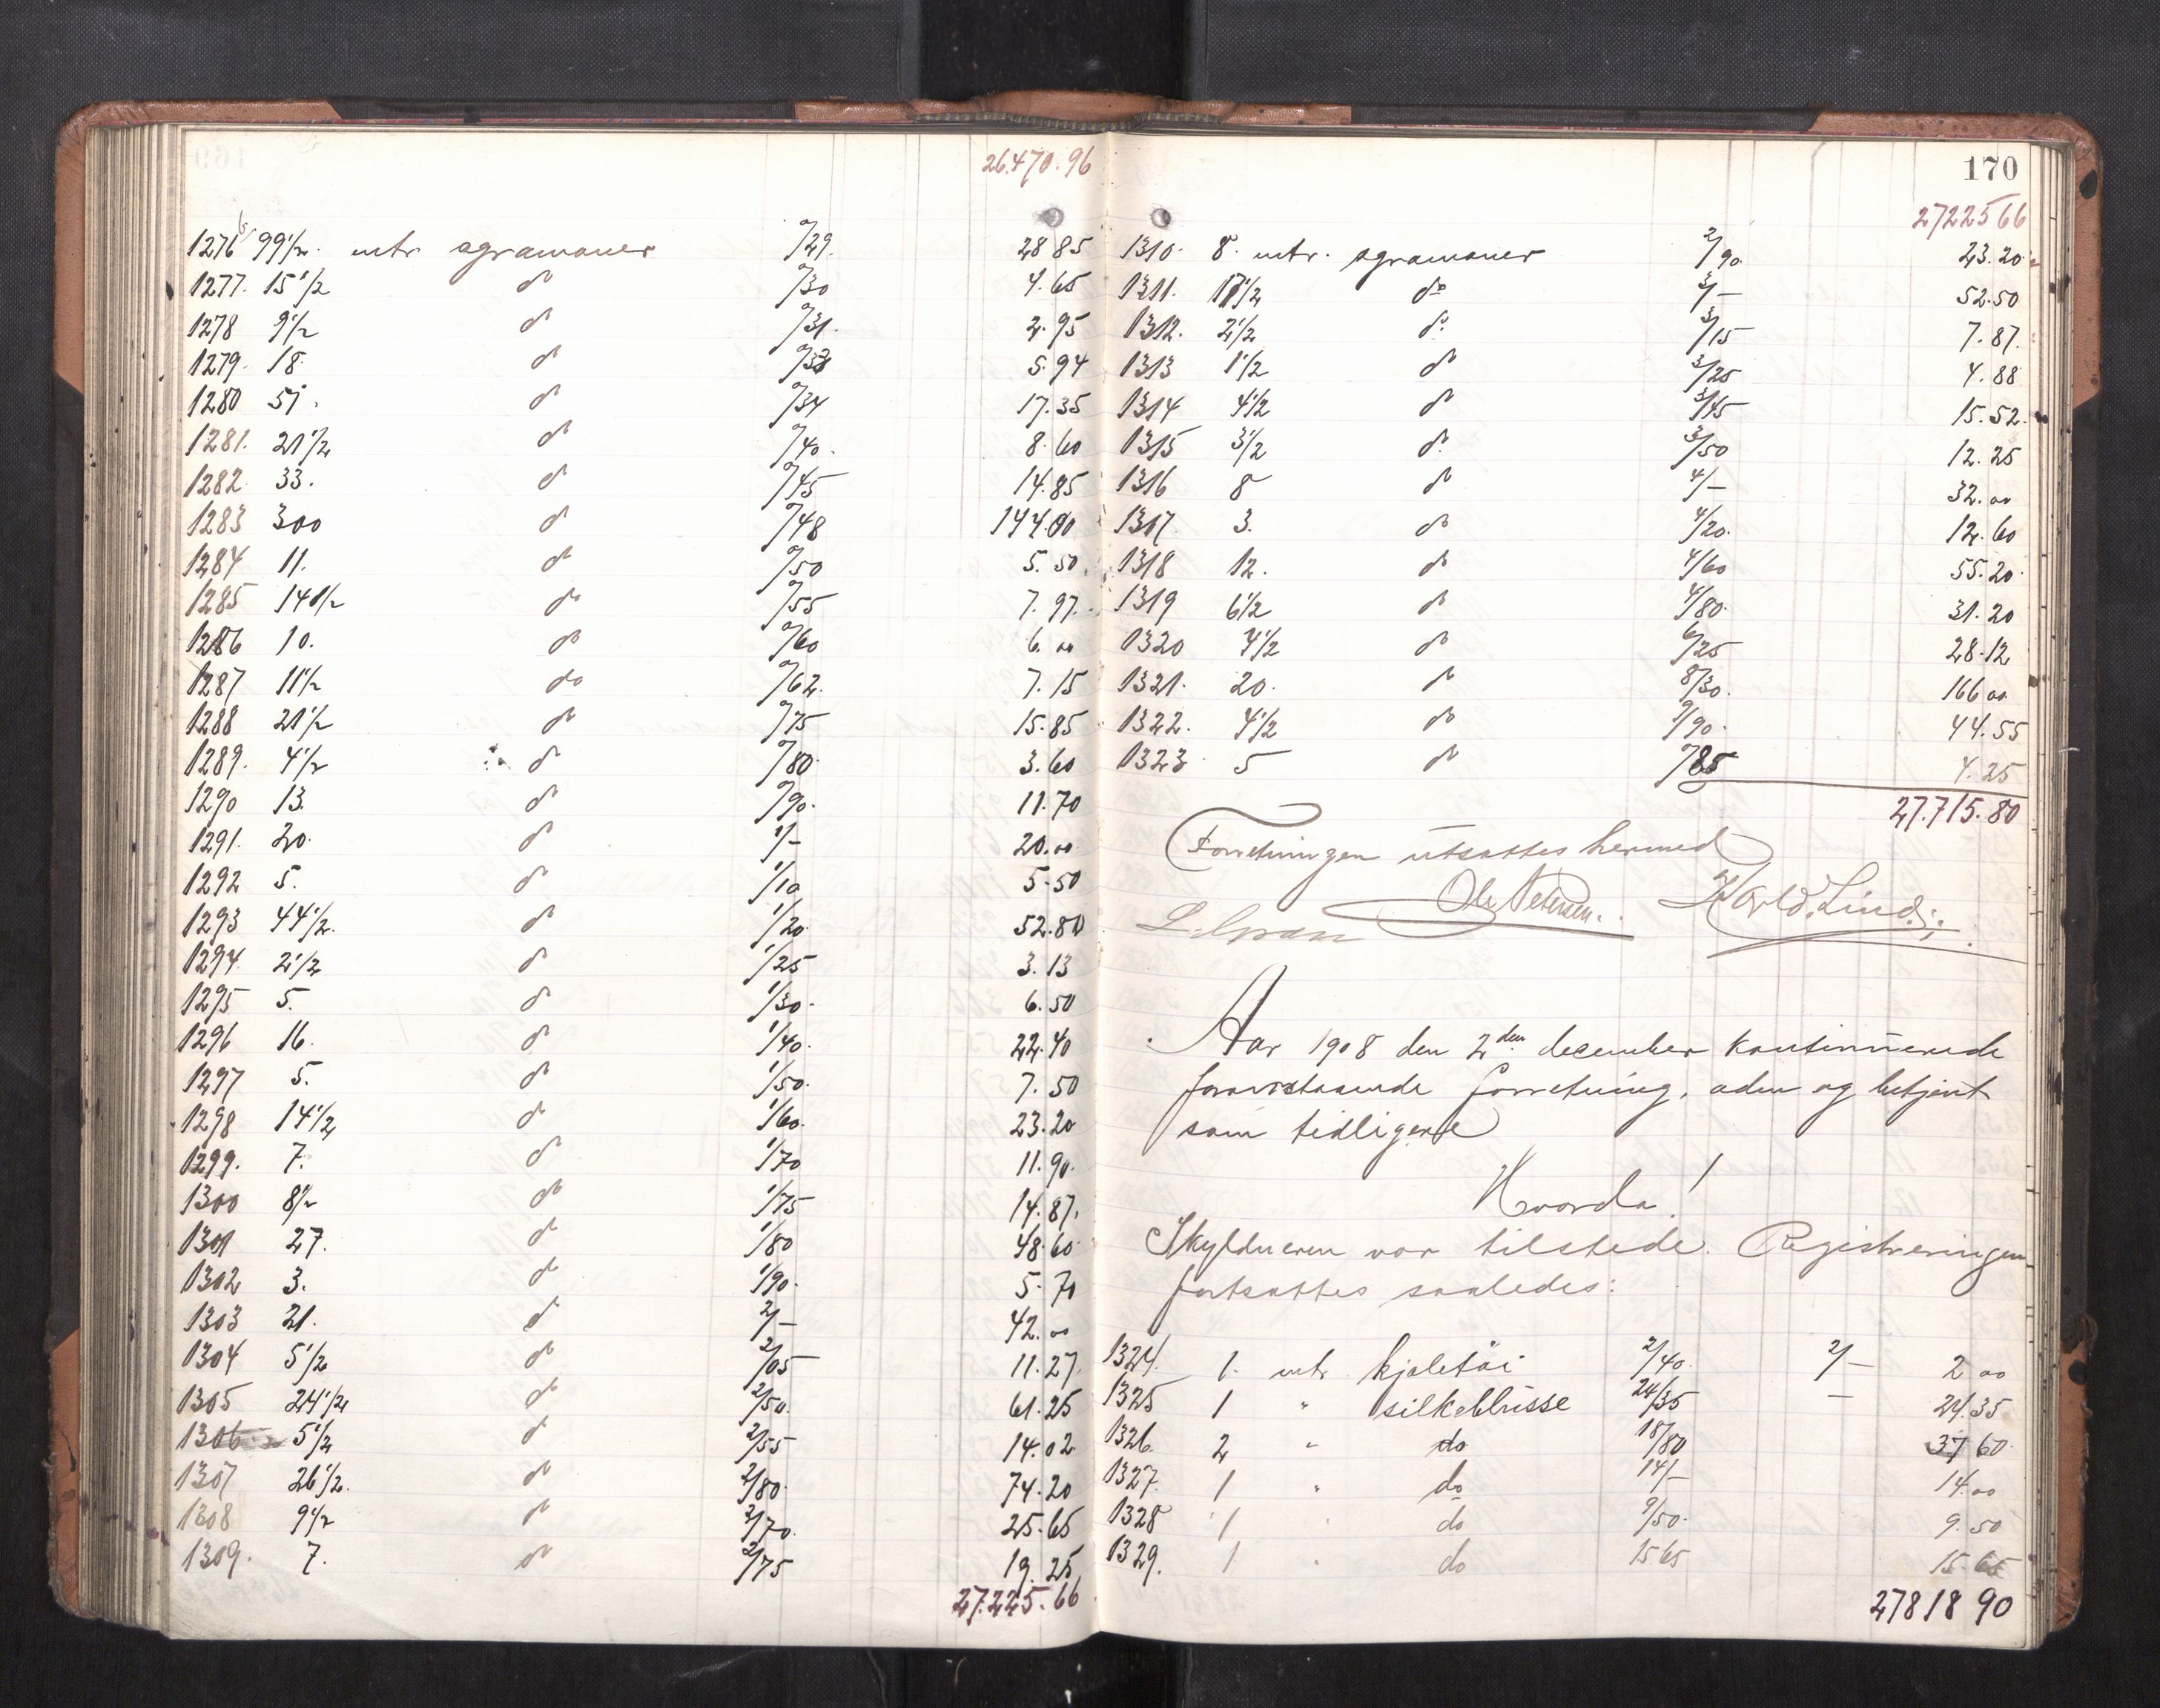 26.470.96
1276 99 1/2 mtr agramaner "/29. 28 85
1277. 15 1/2 do "/30 4.65
1278 9 1/2 do "/31. 2.95
1279. 18. do "/33 5.94
1280 51. do "/34 17.35
1281. 21 1/2 do "/40. 8.60
1282 33. do "/45 14.85
1283 300 do "/48 144.00
1284 11. do "/50 5.50
1285 14 1/2 do "/55 7.97.
1286 10. do "/60 6.00
1287 11 1/2 do "/62. 7.15
1288 21 1/2 do "/75 15.85
1289. 4 1/2 do "/80 3.60
1290 13. do "/90. 11.70
1291. 20. do 1/- 20.00
1292 5. do 1/10 5.50
1293 44 1/2. do 1/20 52.80
1294. 2 1/2 do 1/25 3.13
1295 5. do 1/30. 6.50
1296 16. do 1/40. 22.40
1297 5. do 1/50. 7.50
1298 14 1/2 do 1/60. 23.20
1299. 7. do 1/70 11.90.
1300 8 1/2 do 1/75 14.87.
1301 27. do 1/80 48.60
1302 3. do 1/90. 5.70
1303 21. do 2/- 42.00
1304 5 1/2 do 2/05 11.27
1305 24 1/2 do 2/50. 61.25
1306 5 1/2 do 2/55 14.02
1307 26 1/2. do 2/80. 74.20
1308 9 1/2 do 2/70. 25.65
1309. 7. do 2/75 19.25
27.225.66
170
2722566
1310. 8. mtr. agramaner 2/90. 23.20
1311. 17 1/2 do 3/- 52.50
1312. 2 1/2 do 3/15 7.87.
1313 1 1/2 do 3/25 4.88
1314 4 1/2 do 3/45 15.52.
1315 3 1/2 do 3/50 12.25
1316 8 do 4/- 32.00
1317. 3. do 4/20. 12.60
1318 12. do 4/60 55.20
1319 6 1/2 do 4/80. 31.20
1320 4 1/2 do 6/25 28.12
1321. 20. do 8/30. 166 00
1322. 4 1/2 do 9/90. 44.55
1323 5 do "/85 4.25
27.715.80
Forretningen utsattes hermed
Ole Petersen. Harld. Lind.
Aar 1908 den 2den december kontinuerede
foranstaaende forretning, aden og betjent
som tidligere
Hvorda!
Skyldneren var tilstede. Registreringen
fortsattes saaledes:
1324. 1. mtr kjoletöi 2/40. 2/- 2 00
1325 1 " silkeblusse 24/35 - 24.35
1326. 2 " do 18/80 37 60
1327. 1 " do 14/- 14.00
1328 1 " do 9/50. 9.50
1329. 1 " do 15 65 15.65
27818 90